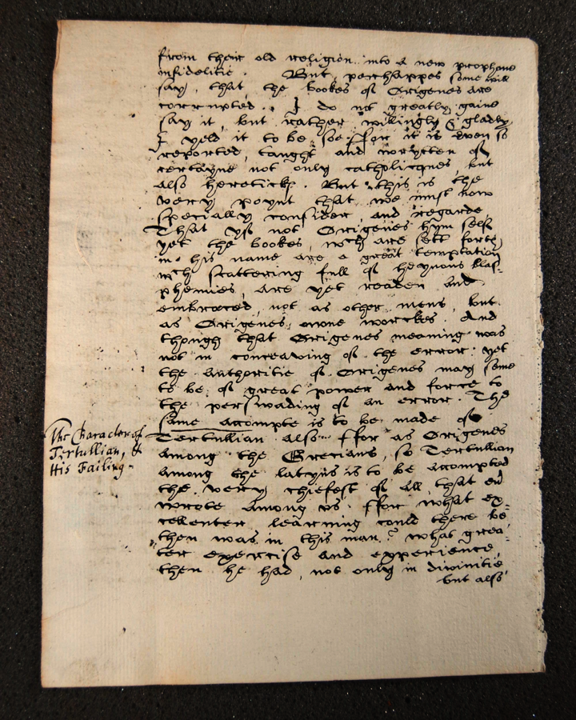 from their old religion into a new prophane
infidelitie. But, perchappes some will
say, that the bookes of Origenes are
corrupted. I do not greatly gaine
say it, but rather willingly & gladly
I yeld it to be so: ffor it is even so
reported, taught and wrytten of
certayne not only catholicques but
also heretick. But this is the
very poynt that we must now
specially consider, and regarde
That yf not Origenes hym self
yet the bookes, wch are sett forth
in his name are a great temptation
wch scattering full of heynous blas-
phemies, are yet readen and
embraced, not as other mens, but
as Origenes owne worckes. And
though that Origenes meaning was
not in conceaving of the error: yet
the authoritie of Origenes may seme
to be of great power and force to
the perswading of an error. The
same accompte is to be made of
Tertullian also. ffor as Origenes
among the Grecians, so Tertullian
among the latyns is to be accompted
the very chiefest of all that en
wrote among us. ffor what ex-
cellenter learning could there be
then was in this man? what grea-
ter exercise and experience,
then he had, not only in divinitie
but also
The Character of
Tertullian, &
His Failing.